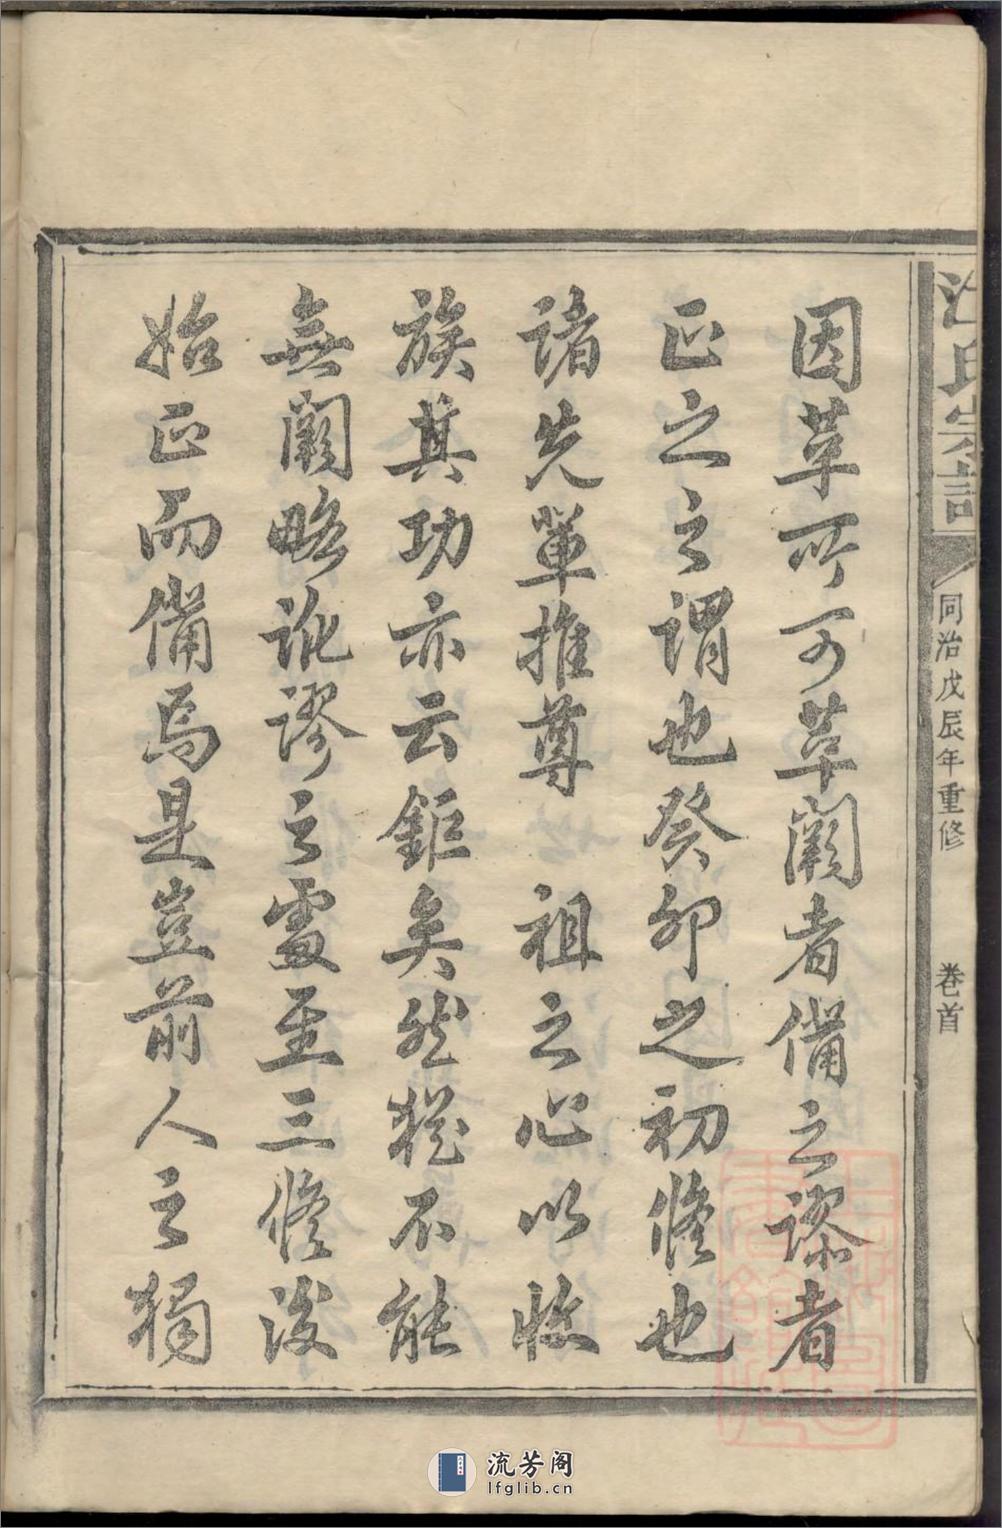 氏宗譜
同治戊辰年重修
卷首
因革所可革闕者備之謬者
正之之謂也癸卯之初修也
諸先輩推尊 祖之心以收
族其功亦云鉅矣然猶不能
無闕略訛謬之處至三修後
始正而備焉是豈前人之獨
流芳阁
lfglib.cn